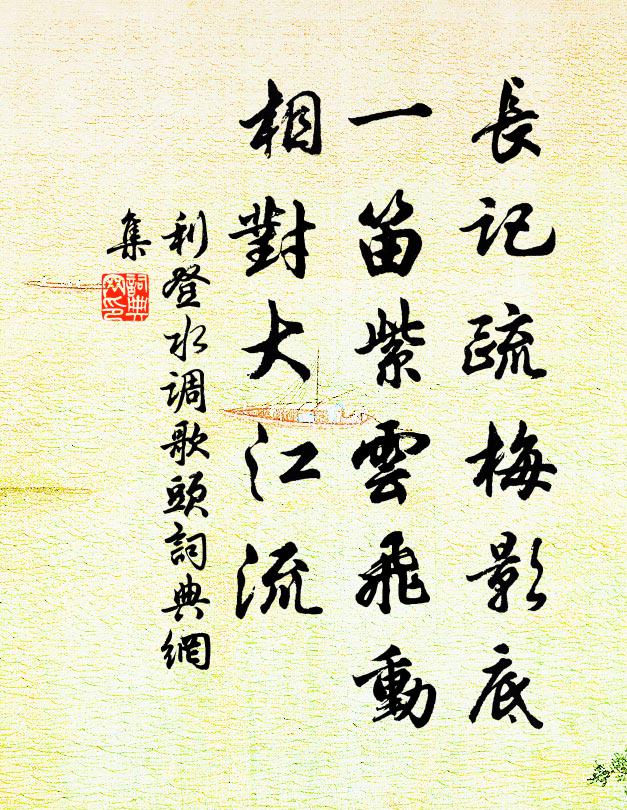 長記疏梅影底
一笛紫雲飛動
相對大江流
利登水调歌頭詞典網
集
詞典网印